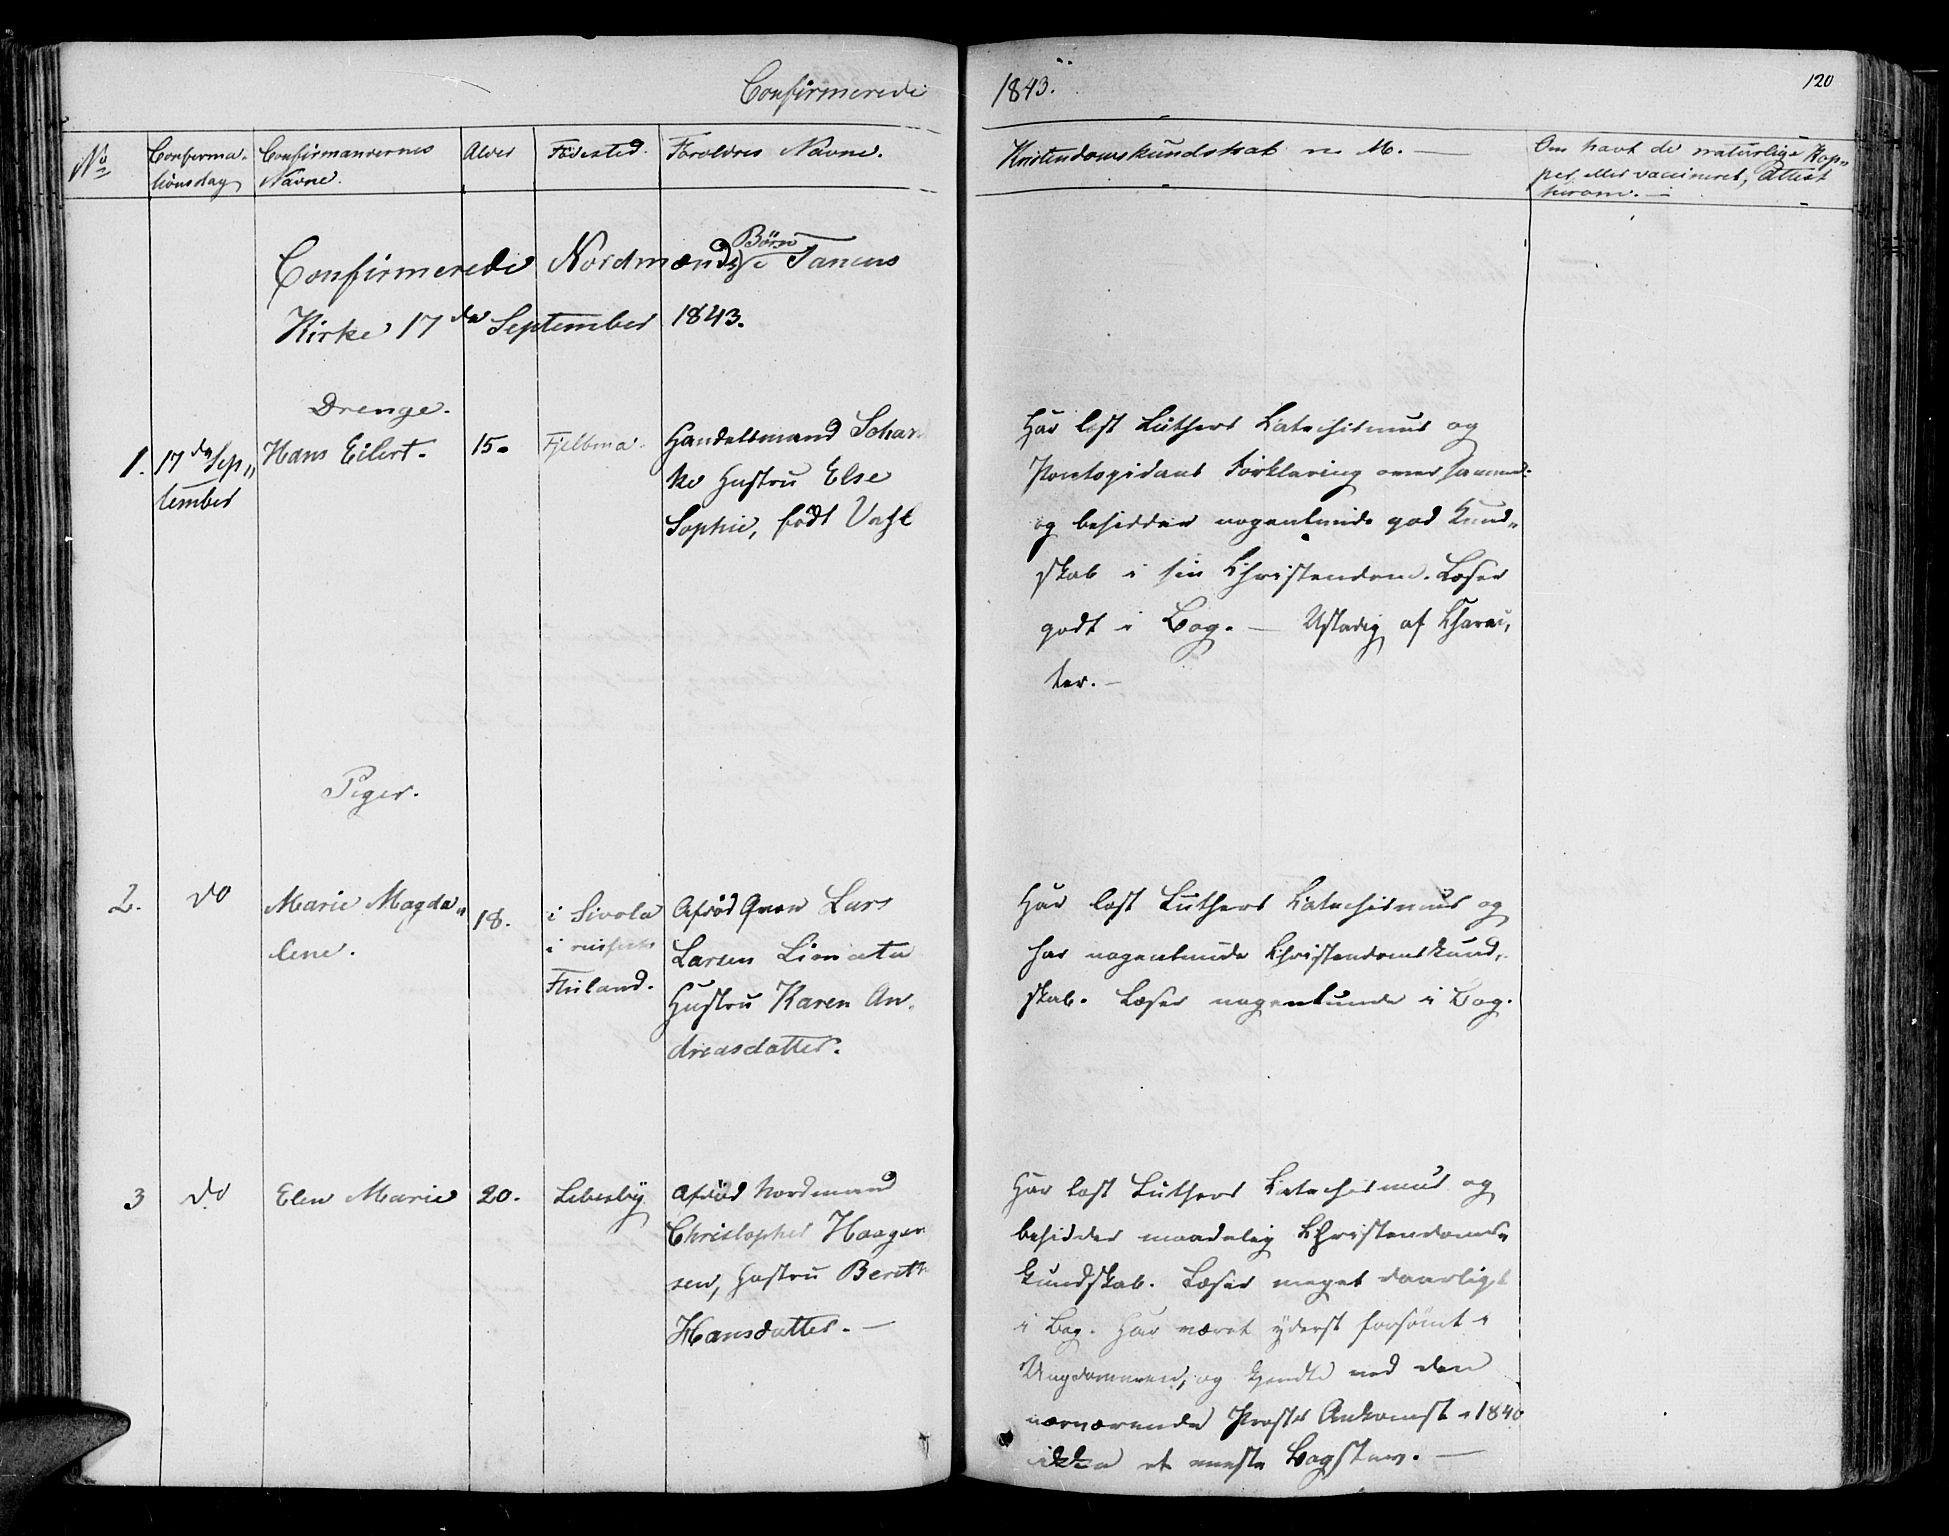 Confirmerede
1843.
120
No
Confirma-
tionsdag
Confirmandernes
Navne.
Alder
Födested.
Foroldres Navne.
Kristendomskundskab m. M. —
Om havt de naturlige Kop„
per, eller vaccineret, Attest
herom. —
Confirmerede Nordmænds Börn i Tanens
Kirke 17de September 1843.
Drenge.
1.
17de Sep„
tember
Hans Eilert.
15.
Fjelbma.
Handelsmand Schan
ke Hustru Else
Sophie, født
Har læst Luthers Catechismus og
Pontopidans Forklaring over samme
og besidder nogenlunde god Kund„
skab i sin Christendom. Læser
godt i Bog. — Ustadig af Charac,
ter. —
Piger.
2.
do
Marie Magda„
lene.
18.
i Sivola
i russisk
Finland.
Afdöd Qvæn Lars
Larsen Limata
Hustru Karen An„
dreasdatter.
Har læst Luthers Catechismus og
har nogenlunde Christendomskund„
skab. Læser nogenlunde i Bog.
3
do
Elen Marie
20.
Lebesby
Afdöd Nordmand
Christopher Haagen
sen, Hustru Berith
Hansdatter. —
Har læst Luthers Catechismus og
besidder maadelig Christendoms„
kundskab. Læser meget daarligt
i Bog. Har været yderst forsömt i
Ungdommen, og kjendte ved den
nærværende Præsts Ankomst i 1840
ikke et eneste Bogstav. —